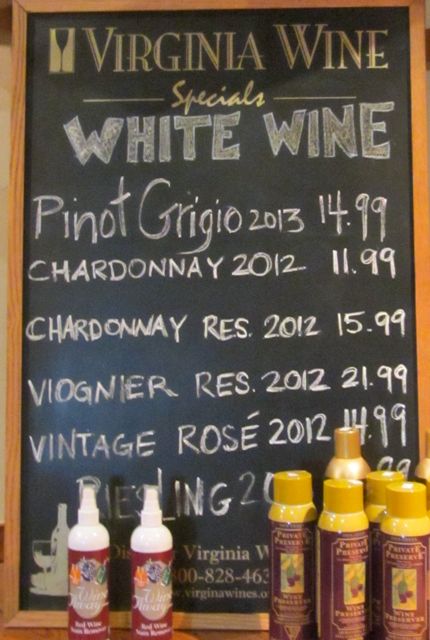 VIRGINIA WINE
Specials
WHITE WINE
Pinot Grigio 2013 14.99
CHARDONNAY 2012 11.99
CHARDONNAY RES. 2012 15.99
VIOGNIER RES. 2012 21.99
VINTAGE ROSÉ 2012 14.99
RIESLING 20 99
Virginia W
800-828-463
www.virginiawines.o
Wine
Away
Red Wine
Stain Remover
Wine
Away
Red Wine
Stain Remover
PRIVATE
PRESERVE
WINE
PRESERVER
PRIVATE
PRESERVE
WINE
PRESERVER
PRIVATE
PRESERVE
WINE
PRESERVER